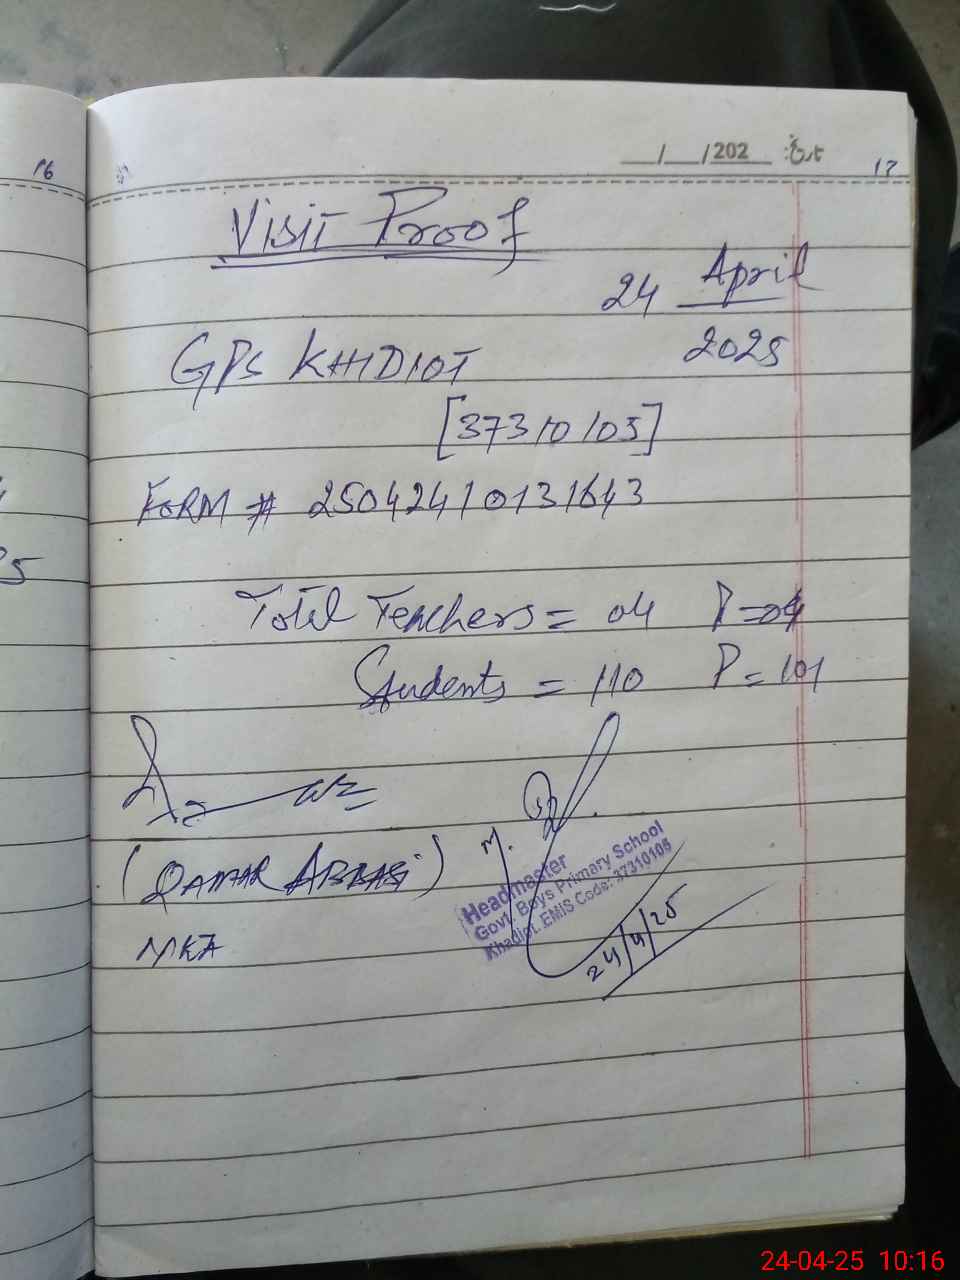 16
__/__/202__ تاریخ:
17
Visit Proof
24 April
2025
GPS KHIDIOT
[37310105]
FORM # 25042410131643
Total Teachers = 04 P = 04
Students = 110 P = 101
(QAMAR ABBASI)
M.
Headmaster
Govt. Boys Primary School
Khadiot. EMIS Code: 37310105
24/4/25
MKA
25
24-04-25 10:16